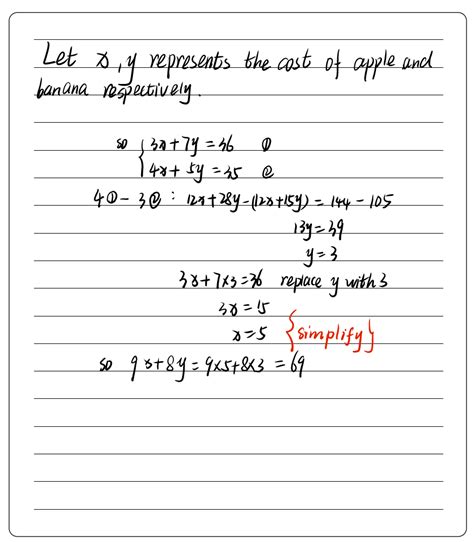 Let x, y represents the cost of apple and
banana respectively.
so { 3x+7y=36 ①
4x+5y=35 ②
4①-3②: 12x+28y-(12x+15y)=144-105
13y=39
y=3
3x+7×3=36 replace y with 3
3x=15
x=5 {simplify}
so 9x+8y=9×5+8×3=69